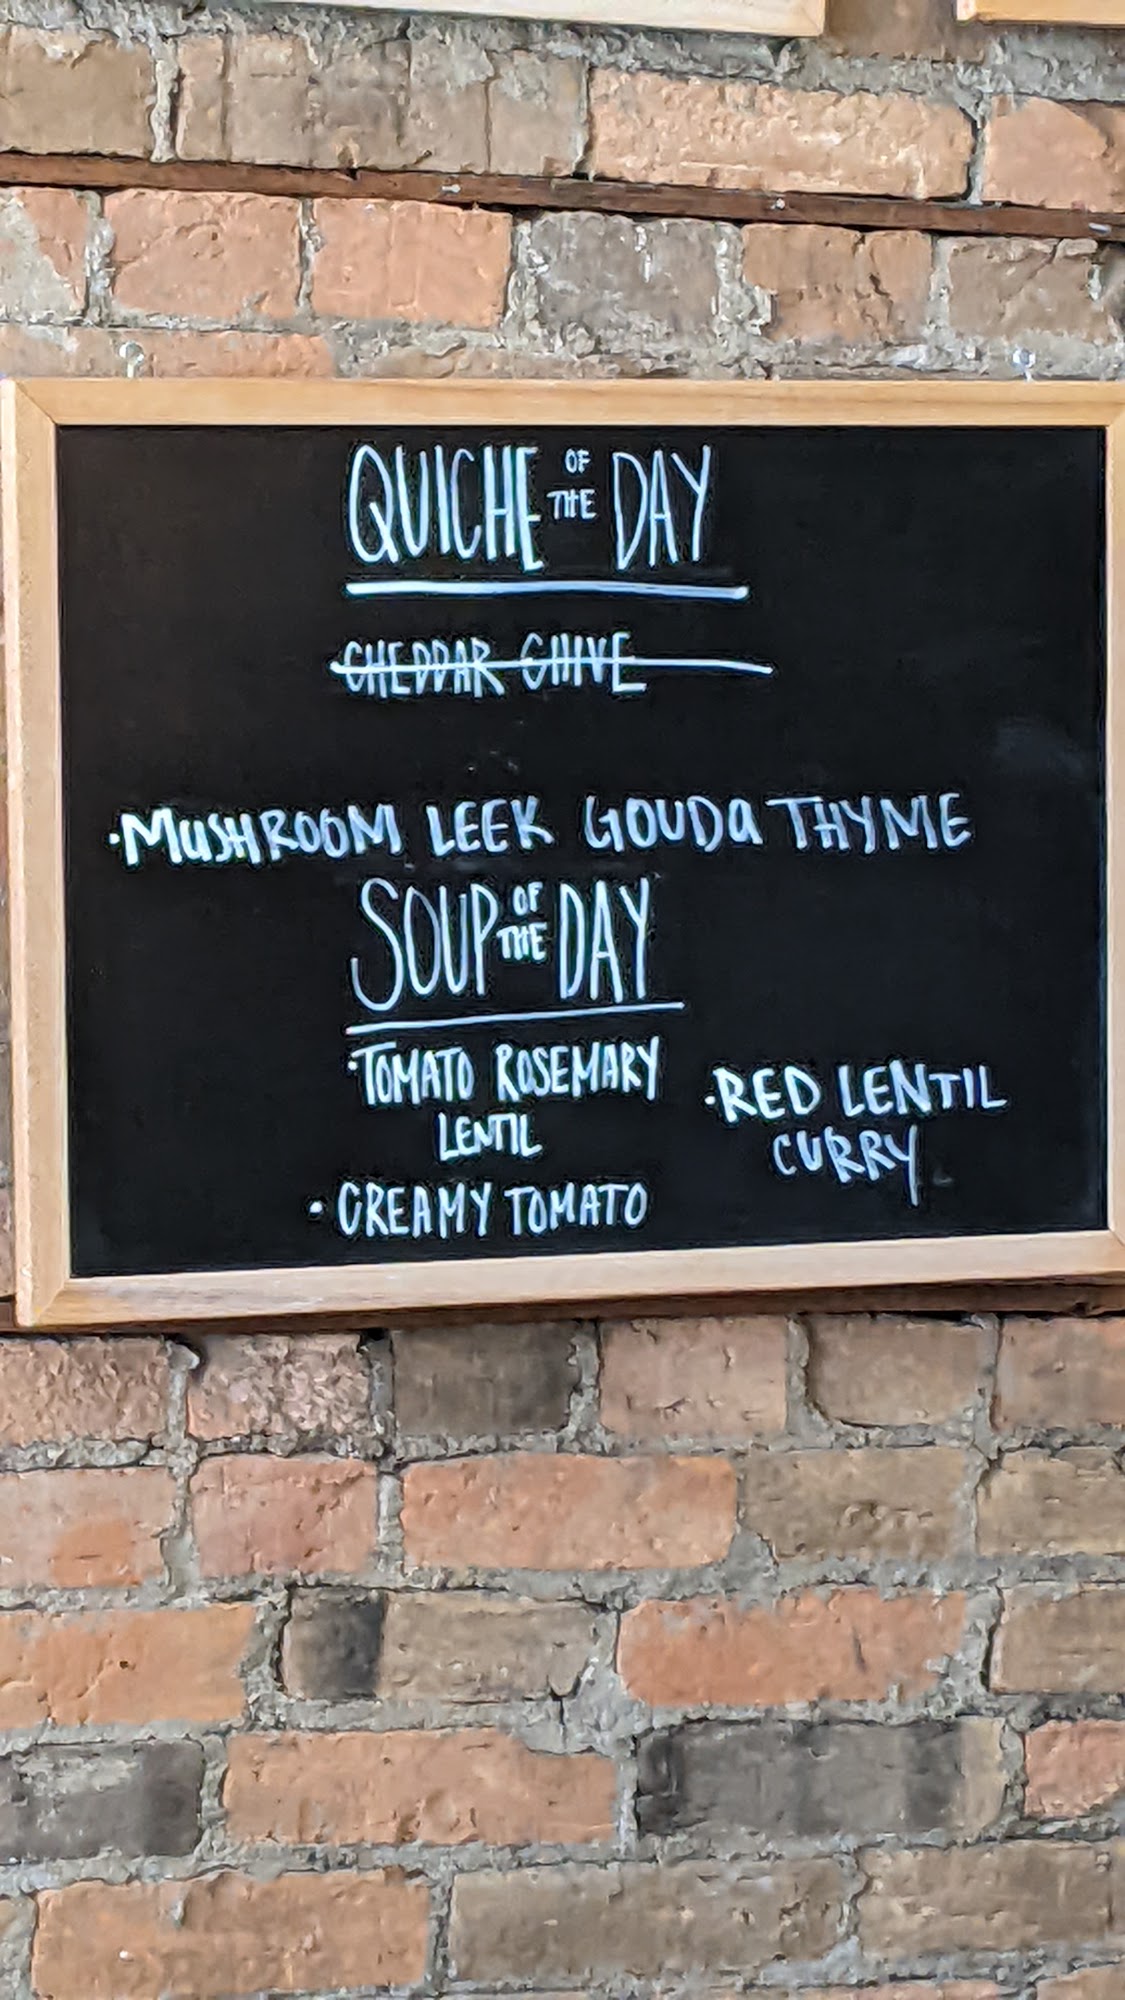 QUICHE OF THE DAY
CHEDDAR CHIVE
·MUSHROOM LEEK GOUDA THYME
SOUP OF THE DAY
·TOMATO ROSEMARY
LENTIL
·CREAMY TOMATO
·RED LENTIL
CURRY